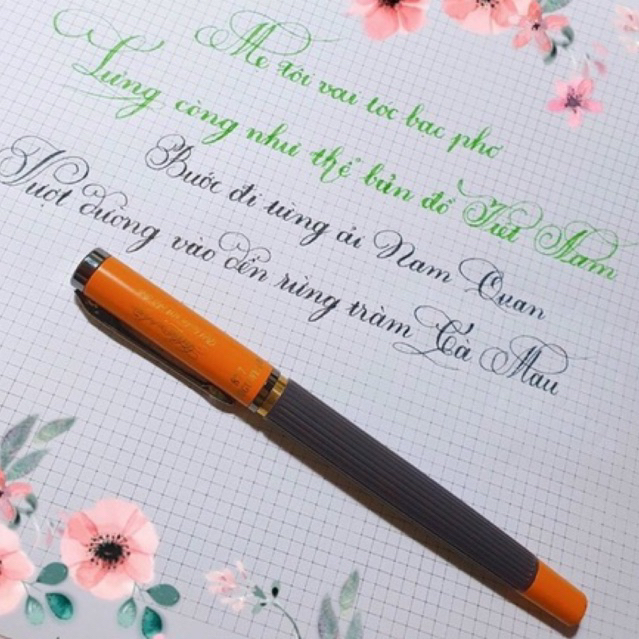 Mẹ tôi vai tóc bạc phơ
Lưng còng như thể bản đồ Việt Nam
Bước đi từng ải Nam Quan
Vượt đường vào đến rừng tràm Cà Mau